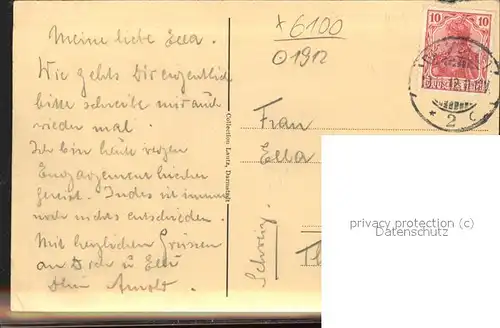 * 6100
O 1912
10
10
Meine liebe Ella.
Wie gehts Dir eigentlich
bitte schreibe mir auch
wieder mal.
Ich bin heute wegen
Engagement hierher
gereist. Indes ist immer
noch nichts entschieden.
Mit herzlichen Grüssen
an Dich u
Dein Arnold.
Collection Lautz, Darmstadt
Frau
Ella
* 2 c
privacy protection (c)
Datenschutz